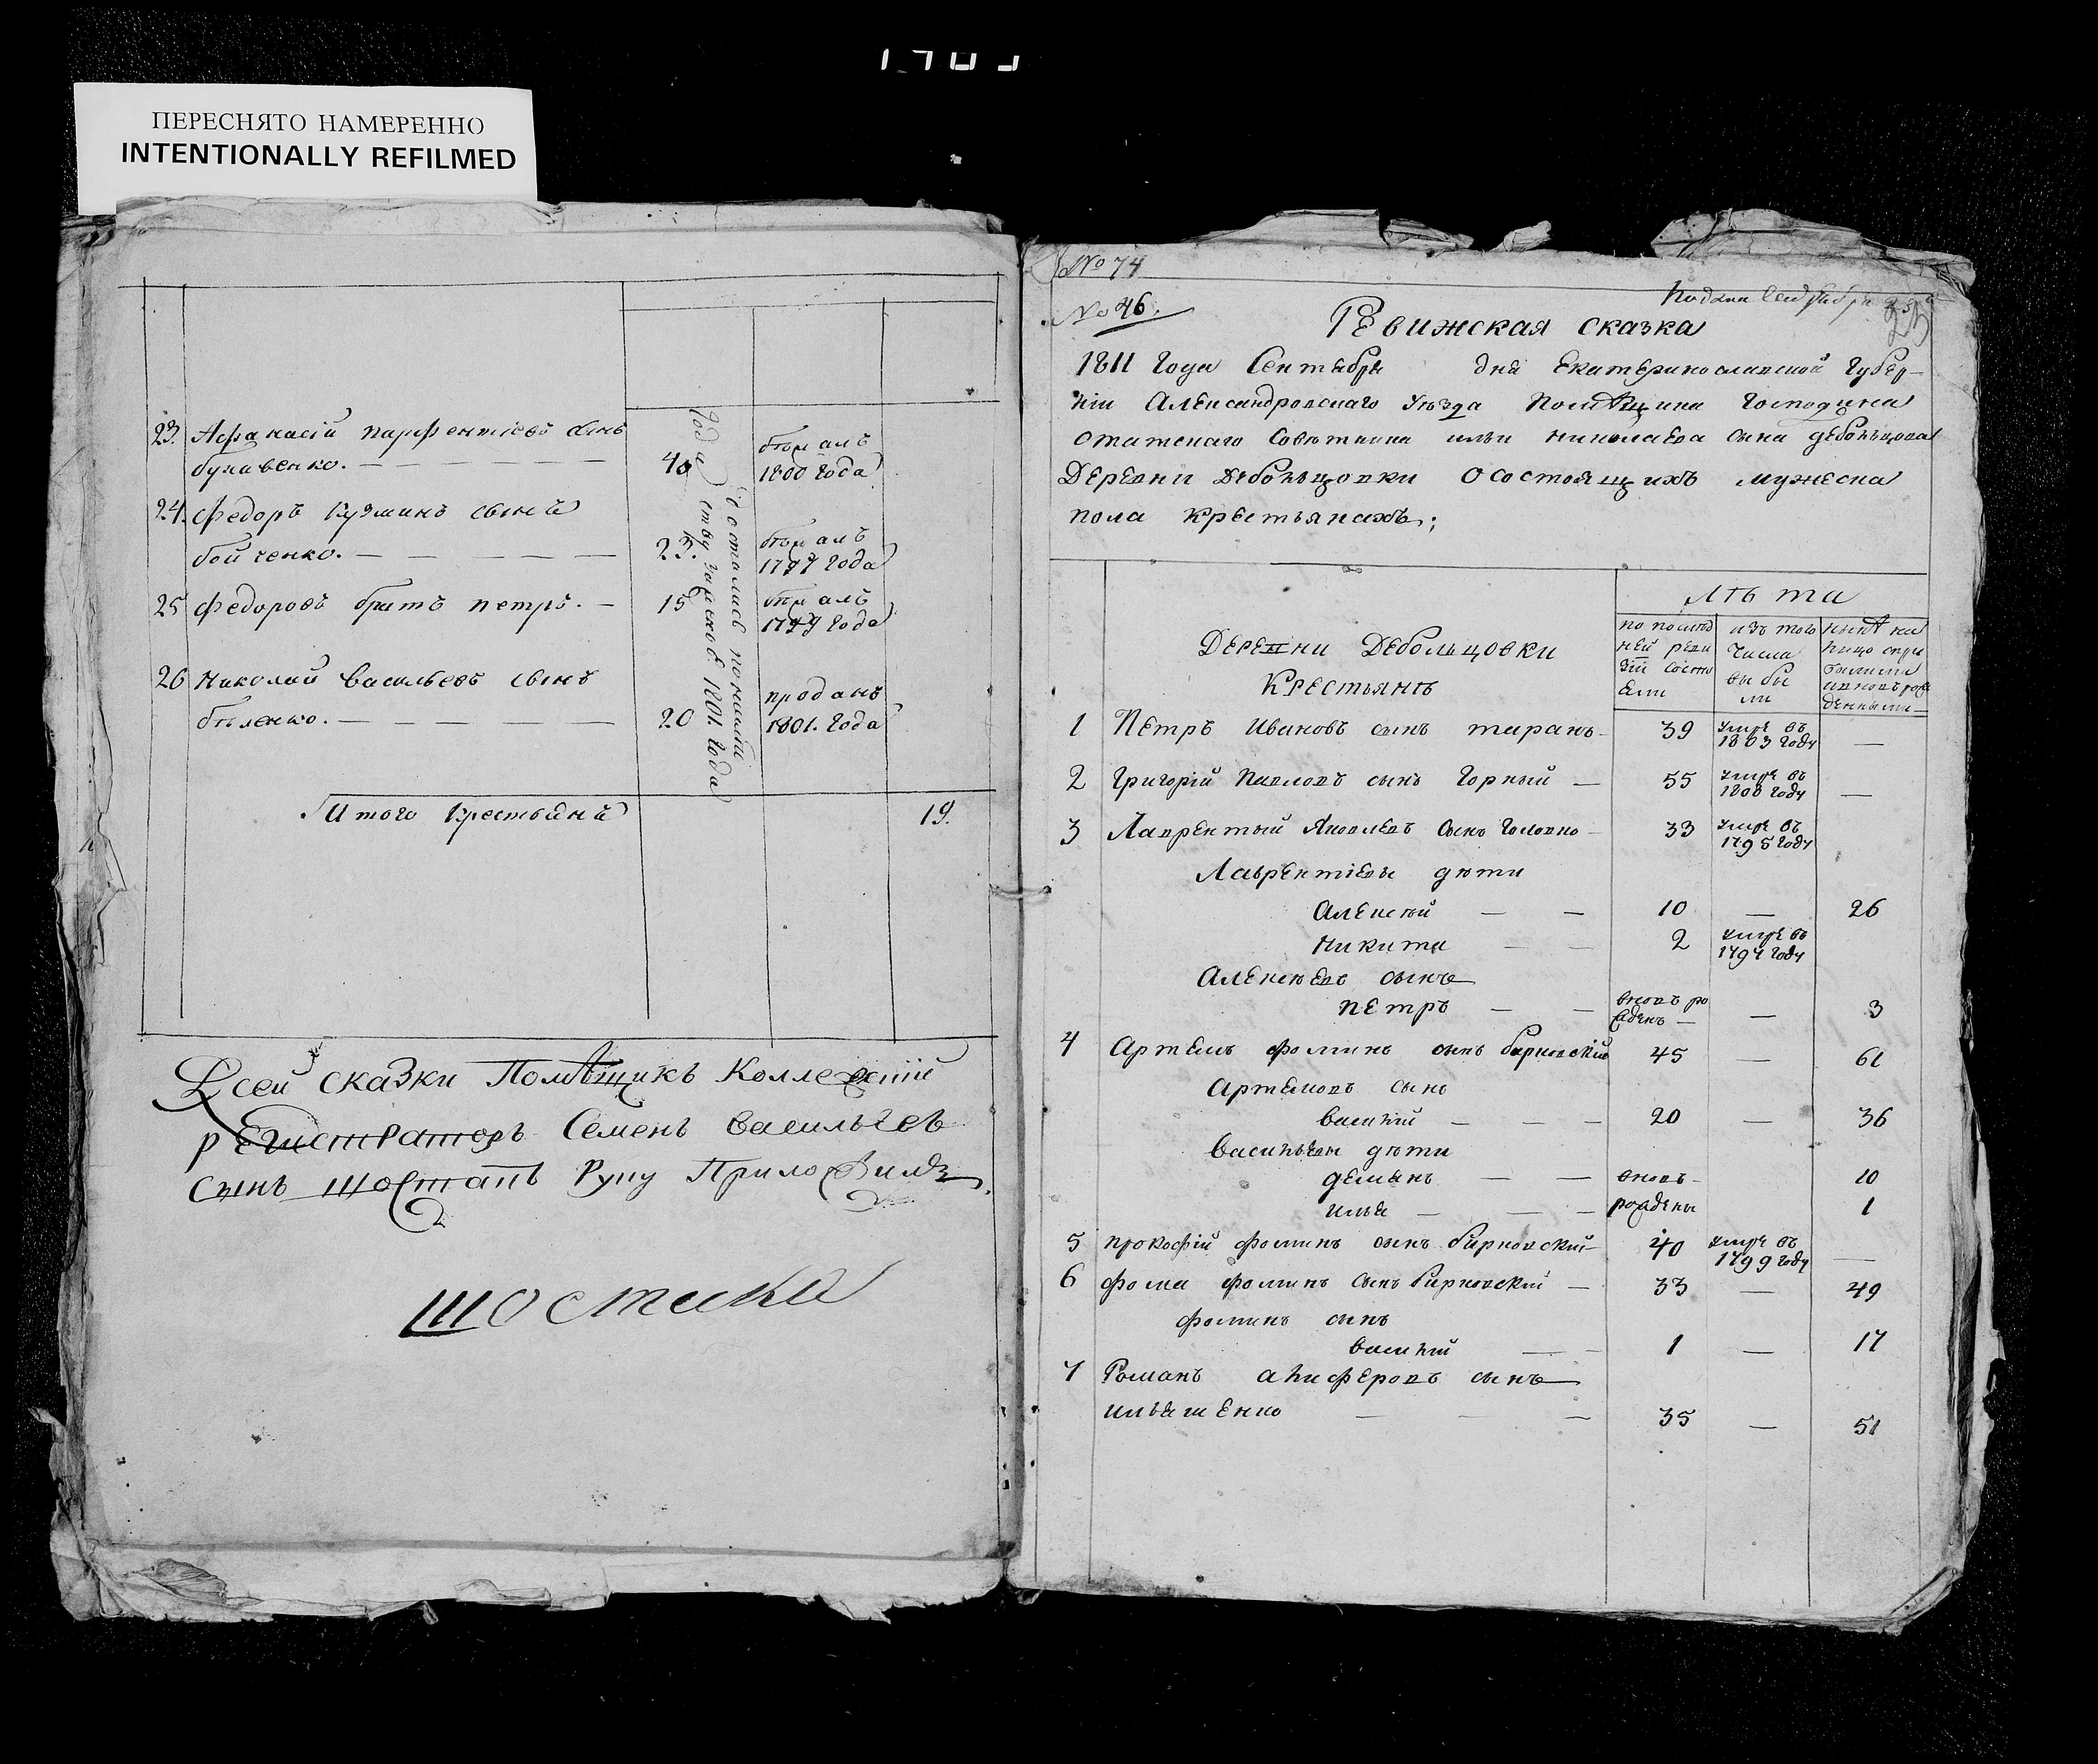 ПЕРЕСНЯТО НАМЕРЕННО
INTENTIONALLY REFILMED
23. Афанасій парфентіевъ сынъ
булавенко. — — — — — 40 бѣжалъ 1800 года
24. федоръ кузминъ сынъ
бойченко. — — — — — 23. бѣжалъ 1797 года
25 федоровъ братъ петръ. — 15 бѣжалъ 1799 года
26 Николай васильевъ сынъ
бѣленко. — — — — — 20 проданъ 1801. года
1801. года
Итого крестьянъ 19.
Ксей сказки Помѣщикъ Коллежскій
регистраторъ Семенъ васильевъ
сынъ шостакъ Руку Приложилъ
шостака
№ 74
№ 46.
Ревижская сказка
1811 года Сентября дня Екатеринославской Губер-
ніи Александровскаго уѣзда помѣщика Господина
статскаго совѣтника ильи николаева сына дебольцова
Деревни Дебольцовки О состоящихъ мужеска
пола крестьянахъ;
лѣта
по послед
ней реви
зіи состо
яли
изъ того
числа
выбы
ли
Деревни Дебольцовки
Крестьянъ
1 Петръ Ивановъ сынъ таранъ 39 умре въ 1803 году —
2 Григорій Павловъ сынъ Горный — 55 умре въ 1800 году —
3 Лаврентый Яковлевъ сынъ Головко 33 умре въ 1795 году
Лаврентіевы дѣти
Алексѣй — — 10 — 26
Никита — — 2 умре въ 1797 году
Алексѣевъ сынъ
Петръ — — вновь рожденъ — — 3
4 Артемъ фоминъ сынъ барновскій 45 — 61
Артемовъ сынъ
василій — — — 20 — 36
васильевы дѣти
демьянъ — — вновь 10
илья — — — рождены 1
5 прокофій фоминъ сынъ барновскій 40 умре въ 1799 году —
6 фома фоминъ сынъ барновскій — 33 — 49
фоминъ сынъ
василій — 1 — 17
7 Романъ алиферовъ сынъ
ильяшенко — — — 35 — 51